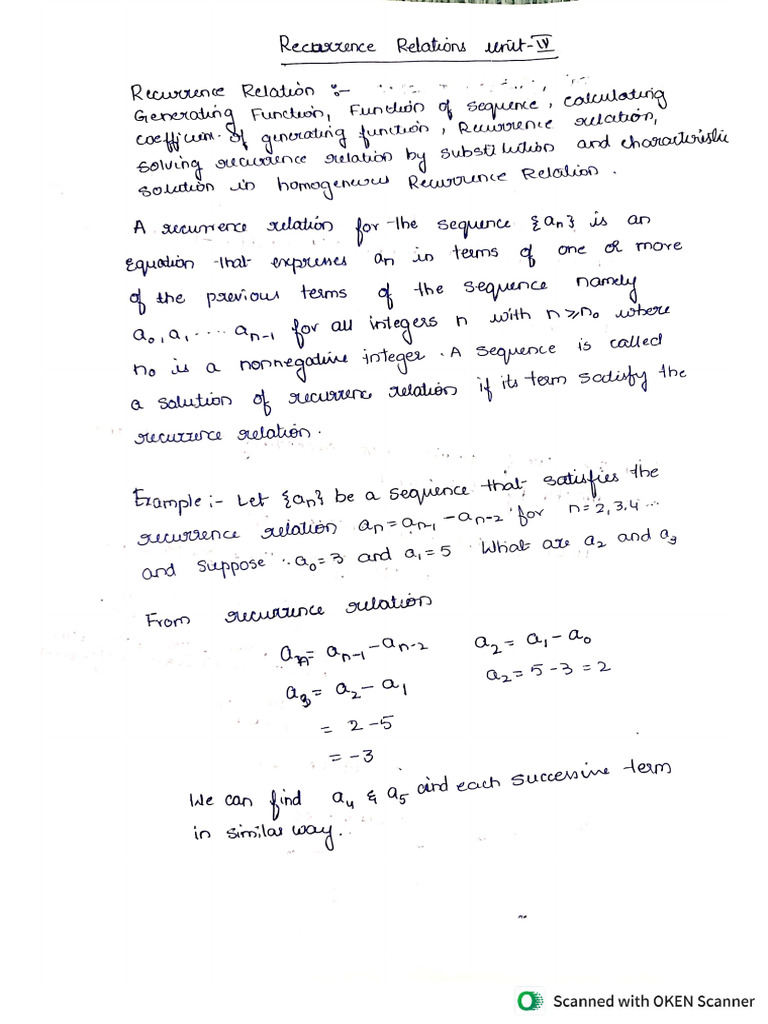 Recurrence Relations unit-IV
Recurrence Relation :-
Generating Function, Function of sequence, calculating
coefficien. of generating function, Recurrence relation,
solving recurrence relation by substitution and characteristic
solution in homogeneous Recurrence Relation.
A recurrence relation for the sequence {aₙ} is an
Equation that expresses aₙ in terms of one or more
of the previous terms of the sequence namely
a₀, a₁ ..... aₙ₋₁ for all integers n with n≥n₀ where
n₀ is a nonnegative integer. A sequence is called
a solution of recurrenc relation if its term satisfy the
recurrence relation.
Example :- Let {aₙ} be a sequence that satisfies the
recurrence relation aₙ = aₙ₋₁ - aₙ₋₂ for n = 2, 3.4 ...
and suppose a₀ = 3 and a₁ = 5 What are a₂ and a₃
From recurrence relation
aₙ = aₙ₋₁ - aₙ₋₂ a₂ = a₁ - a₀
a₃ = a₂ - a₁ a₂ = 5 - 3 = 2
= 2 - 5
= -3
We can find a₄ & a₅ and each successive term
in similar way.
Scanned with OKEN Scanner